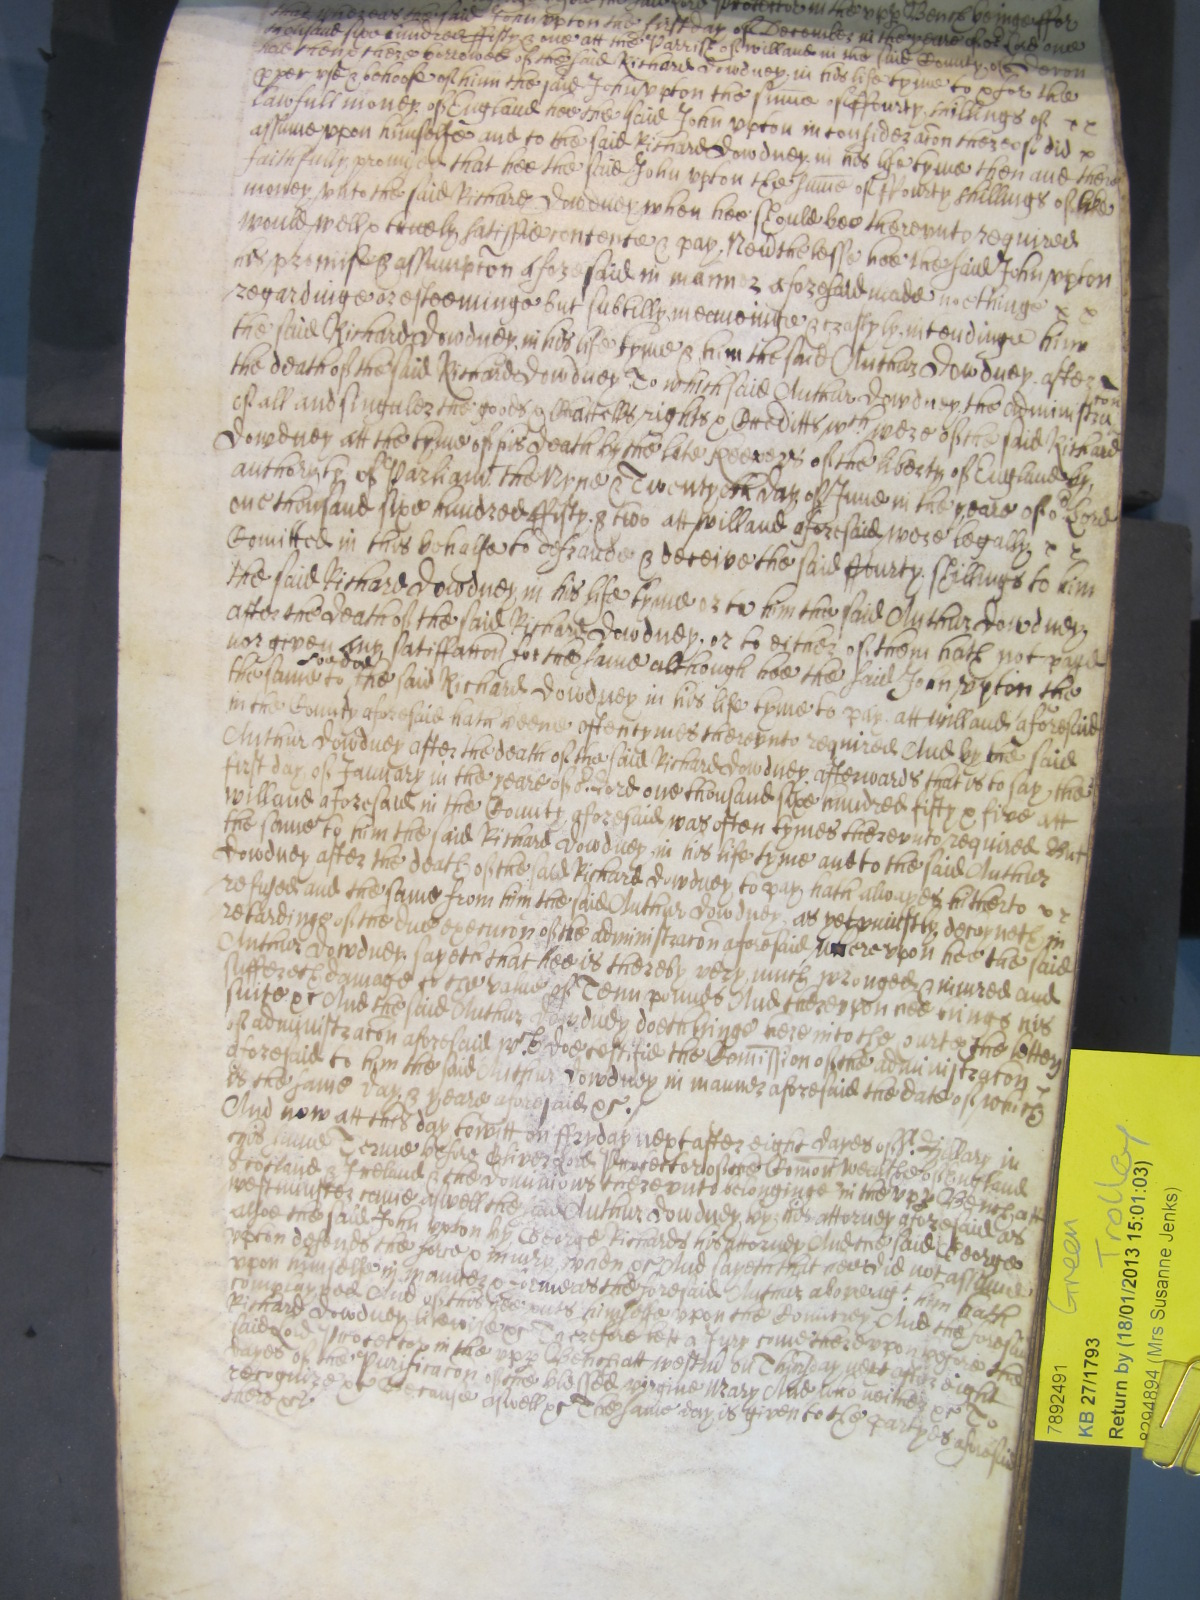 the said Lord Protector in the vpp Bench beinge ffor
that whereas the said John vpton the first day of December in the yeare of or Lord one
thousand sixe hundred ffifty & one att the Parrish of willand in the said County of Devon
had there borrowed of the said Richard Dowdney in his life tyme to & for the
pper vse & behoofe of him the said John vpton the sume of ffourty shillings of x x
lawfull money of England hee the said John vpton in consideracon thereof did x
assume vpon himselfe and to the said Richard Dowdney in his life tyme then and there
faithfully promised that hee the said John vpton the sume of ffourty shillings of like
money vnto the said Richard Dowdney when hee should bee therevnto required
would well & truely satisfie contente & pay. Nevthelesse hee the said John vpton
his promise & assumpcon aforesaid in manner aforesaid made noethinge x x
regardinge or esteeminge but subtilly meaneinge & craftyly intendinge him
the said Richard Dowdney in his life tyme & him the said Arthur Dowdney after
the death of the said Richard Dowdney To which said Arthur Dowdney the administracon
of all and singuler the goods & Chattells rights & Creditts wch were of the said Richard
Dowdney att the tyme of his death by the late Keepers of the liberty of England by
authority of Parliamt the Nyne & Twentyeth day of June in the yeare of or Lord
one thousand sixe hundred ffifty & two att willand aforesaid were legally x x
Comitted in this behalfe to defraude & deceive the said ffourty shillings to him
the said Richard Dowdney in his life tyme or to him the said Arthur Dowdney
after the death of the said Richard Dowdney or to either of them hath not payd
nor given any satisfaccon for the same although hee the said John vpton the
the same to the said Richard Dowdney in his life tyme to pay att willand aforesaid
in the County aforesaid hath beene oftentymes therevnto required And by the said
Arthur Dowdney after the death of the said Richard Dowdney afterwards that is to say the
first day of January in the yeare of or Lord one thousand sixe hundred fifty & five att
willand aforesaid in the County aforesaid was often tymes therevnto required But
the same to him the said Richard Dowdney in his life tyme and to the said Arthur
Dowdney after the death of the said Richard Dowdney to pay hath alwayes hitherto x x
refused and the same from him the said Arthur Dowdney as yet vniustly deteyneth in
retardinge of the due execucon of the administracon aforesaid wherevpon hee the said
Arthur Dowdney sayeth that hee is thereby very much wronged & iniured and
suffereth damage to the value of Tenn pounds And therevpon hee brings his
suite &c And the said Arthur Dowdney doeth bringe here into the Court the letters
of administracon aforesaid wch doe testifie the Comission of the administracon x
aforesaid to him the said Arthur Dowdney in manner aforesaid the date of which
is the same day & yeare aforesaid &c.
And now att this day to witt on ffryday next after eight dayes of St Hillary in
this same Terme before Oliver Lord Protector of the Comon wealth of England
Scotland & Ireland & the dominions therevnto belonginge in the vpp Bench att
westminster came aswell the said Arthur Dowdney by his attorney aforesaid as
alsoe the said John vpton by George Richards his attorney And the said George
vpton defends the force & iniury when &c And sayeth that hee did not assume
vpon himselfe in manner & forme as the foresaid Arthur above agt him hath
complayned And of this hee puts himselfe vpon the Country And the foresaid
Richard Dowdney likewise &c Therefore lett a Jury come therevpon before the
said Lord Protector in the vpp Bench att westmr on Thursday next after eight
dayes of the Purificacon of the blessed virgine Mary And who neither &c To
recognize &c Because aswell &c The same day is given to the partyes aforesaid
there &c
Green
Trolley
7892491
KB 27/1793
Return by (18/01/2013 15:01:03)
8294894 (Mrs Susanne Jenks)